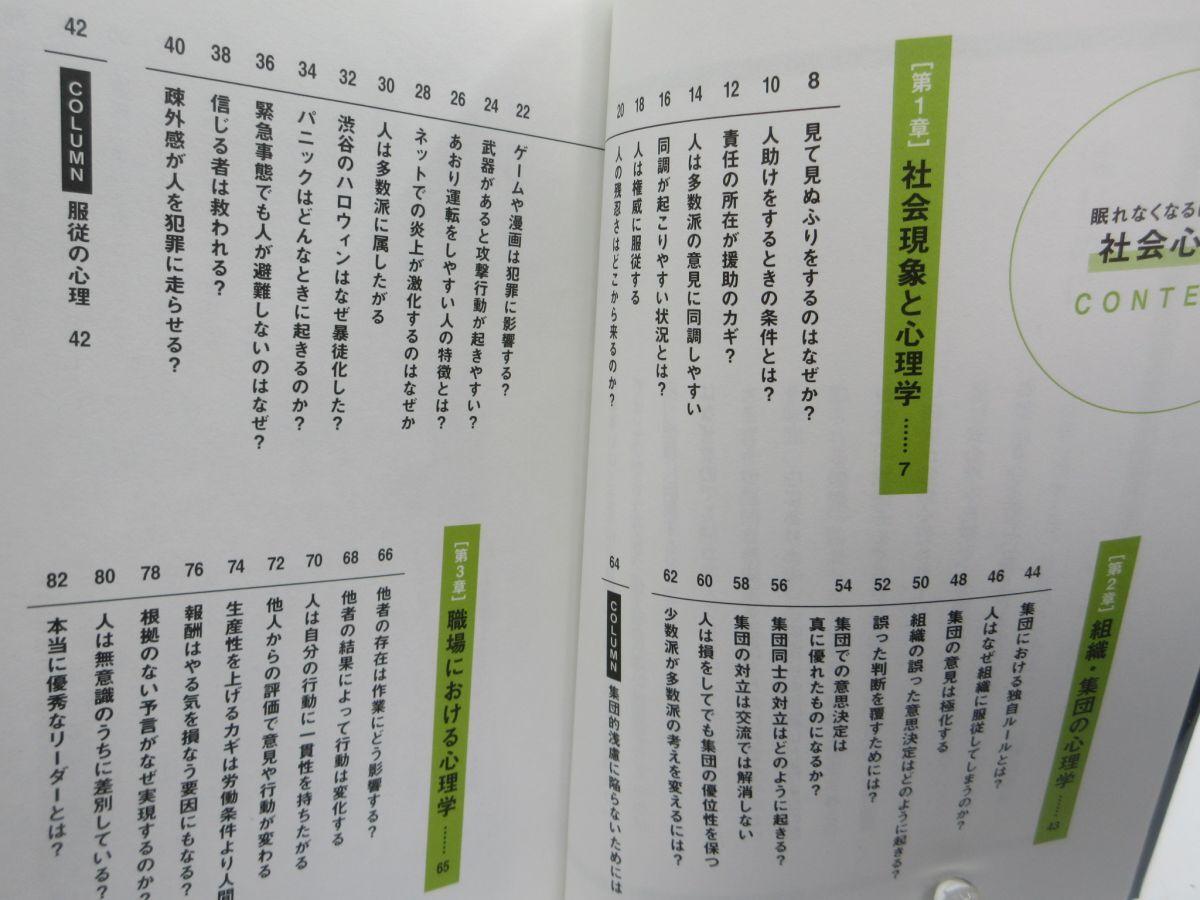 眠れなくなる
社会心
CONTE
[第1章] 社会現象と心理学 …… 7
8 見て見ぬふりをするのはなぜか?
10 人助けをするときの条件とは?
12 責任の所在が援助のカギ?
14 人は多数派の意見に同調しやすい
16 同調が起こりやすい状況とは?
18 人は権威に服従する
20 人の残忍さはどこから来るのか?
22 ゲームや漫画は犯罪に影響する?
24 武器があると攻撃行動が起きやすい?
26 あおり運転をしやすい人の特徴とは?
28 ネットでの炎上が激化するのはなぜか
30 人は多数派に属したがる
32 渋谷のハロウィンはなぜ暴徒化した?
34 パニックはどんなときに起きるのか?
36 緊急事態でも人が避難しないのはなぜ?
38 信じる者は救われる?
40 疎外感が人を犯罪に走らせる?
42 COLUMN 服従の心理 42
[第2章] 組織・集団の心理学 …… 43
44 集団における独自ルールとは?
46 人はなぜ組織に服従してしまうのか?
48 集団の意見は極化する
50 組織の誤った意思決定はどのように起きる?
52 誤った判断を覆すためには?
54 集団での意思決定は
真に優れたものになるか?
56 集団同士の対立はどのように起きる?
58 集団の対立は交流では解消しない
60 人は損をしてでも集団の優位性を保つ
62 少数派が多数派の考えを変えるには?
64 COLUMN 集団的浅慮に陥らないためには
[第3章] 職場における心理学 …… 65
66 他者の存在は作業にどう影響する?
68 他者の結果によって行動は変化する
70 人は自分の行動に一貫性を持ちたがる
72 他人からの評価で意見や行動が変わる
74 生産性を上げるカギは労働条件より人間
76 報酬はやる気を損なう要因にもなる?
78 根拠のない予言がなぜ実現するのか?
80 人は無意識のうちに差別している?
82 本当に優秀なリーダーとは?